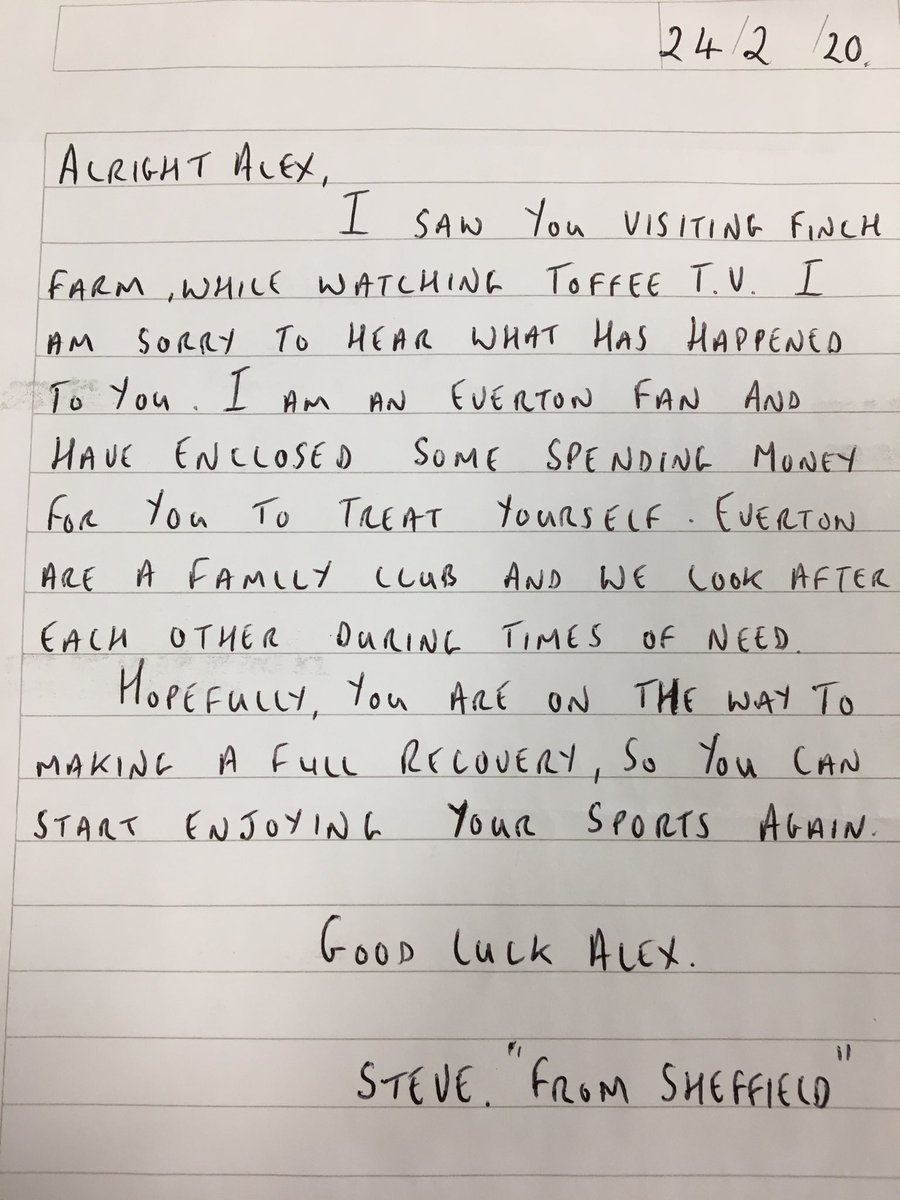 24/2/20.
ALRIGHT ALEX,
I SAW YOU VISITING FINCH
FARM, WHILE WATCHING TOFFEE T.V. I
AM SORRY TO HEAR WHAT HAS HAPPENED
TO YOU. I AM AN EVERTON FAN AND
HAVE ENCLOSED SOME SPENDING MONEY
FOR YOU TO TREAT YOURSELF. EVERTON
ARE A FAMILY CLUB AND WE LOOK AFTER
EACH OTHER DURING TIMES OF NEED.
HOPEFULLY, YOU ARE ON THE WAY TO
MAKING A FULL RECOVERY, SO YOU CAN
START ENJOYING YOUR SPORTS AGAIN.
GOOD LUCK ALEX.
STEVE. "FROM SHEFFIELD"